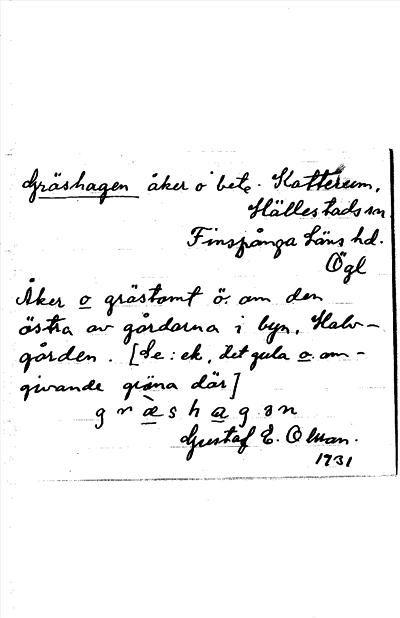 Gräshagen åker o bete. Katterum,
Hällestads sn.
Finspånga läns hd.
Ögl
Åker o grästomt ö. om den
östra av gårdarna i byn, Halv-
gården. [Se: ek. Det gula o. om-
givande gröna där]
g r ä s h a g ə n
Gustaf E. Olsson.
1931